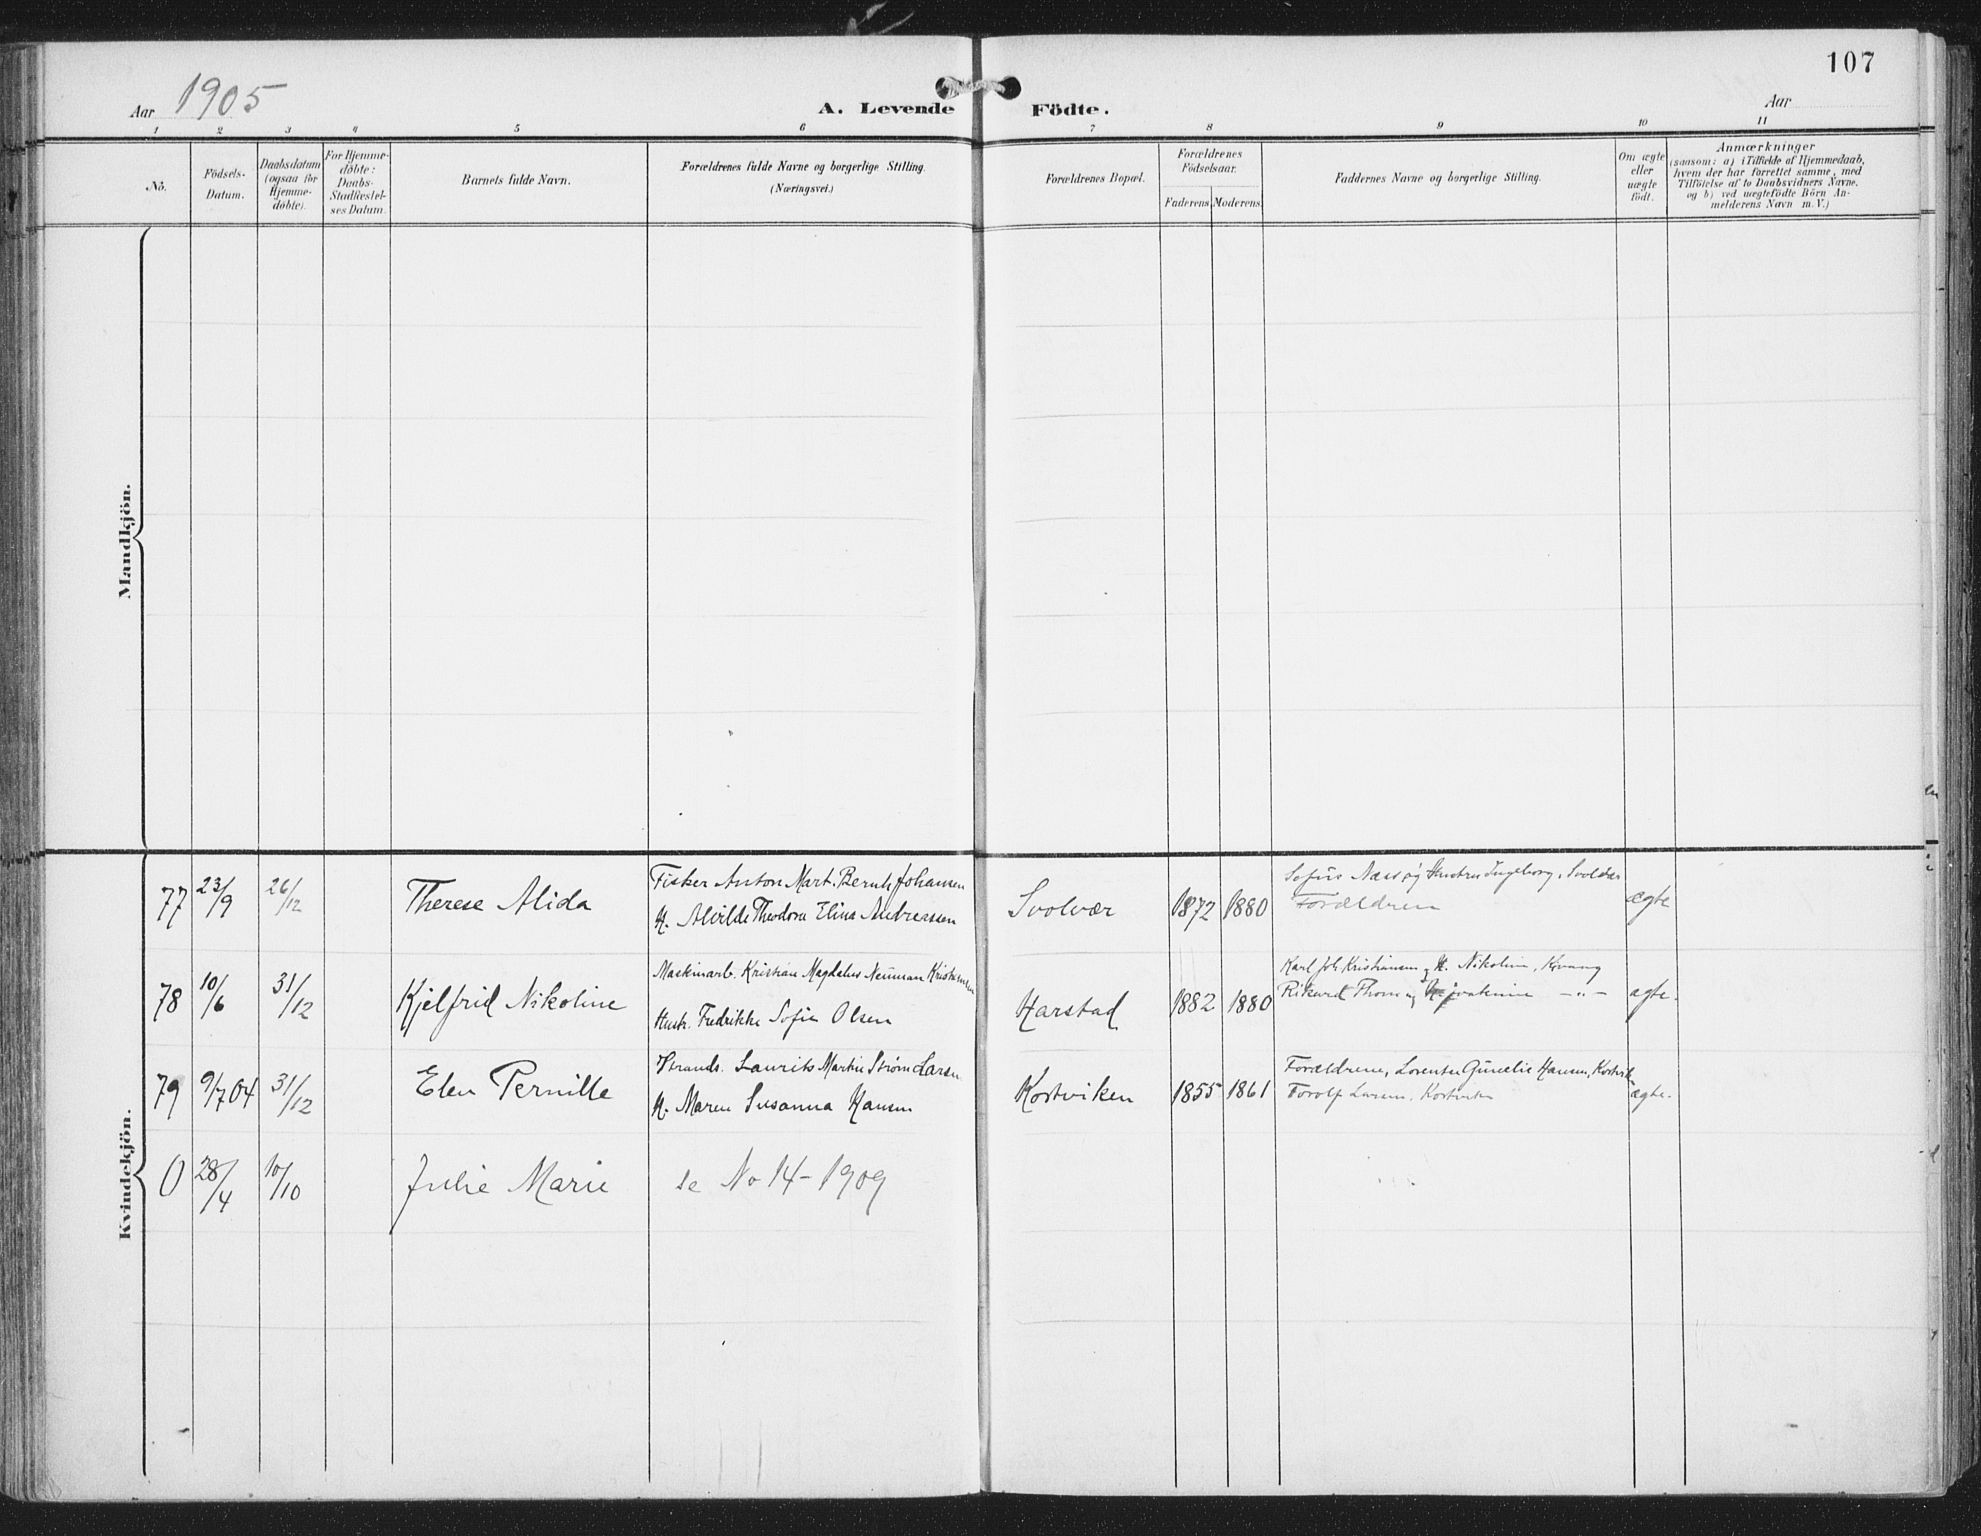 107
Aar 1905
A. Levende Födte.
Aar
1 2 3 4 5 6 7 8 9 10 11
No.
Födsels-
Datum.
Daabsdatum
(ogsaa for
Hjemme-
döbte).
For Hjemme-
döbte:
Daabs-
Stadfæstel-
ses Datum.
Barnets fulde Navn.
Forældrenes fulde Navne og borgerlige Stilling.
(Næringsvei.)
Forældrenes Bopæl.
Forældrenes
Födselsaar.
Faderens. Moderens.
Faddernes Navne og borgerlige Stilling.
Om ægte
eller
uægte
födt.
Anmærkninger
(saasom: a) i Tilfælde af Hjemmedaab,
hvem der har forrettet samme, med
Tilföielse af to Daabsvidners Navne,
og b) ved uægtefödte Börn An-
melderens Navn m. V.)
Mandkjön.
Kvindekjön.
77 23/9 26/12 Therese Alida
Fisker Anton Mart. Bernh. Johansen
H. Alvilde Theodora Elina Andreassen
Svolvær 1872 1880
Sofus Næss og Hustru Ingeborg, Svolvær
Forældrene
ægte
78 10/6 31/12 Kjelfrid Nikoline
Maskinarb. Kristian Magdalus Neuman Kristiansen
Hustr. Fredrikke Sofie Olsen
Harstad 1882 1880
Karl Joh. Kristiansen og H. Nikoline, Kvang
Rikard Thom og Joakime -"-
ægte.
79 9/7 04 31/12 Elen Pernille
Strands. Laurits Martin Strøm Larsen
H. Maren Susanna Hansen
Kortviken 1855 1861
Forældrene, Lorentse Gunelie Hansen, Kortviken
Torolf Larsen, Kortviken
ægte.
0 28/4 10/10 Julie Marie se No 14 - 1909